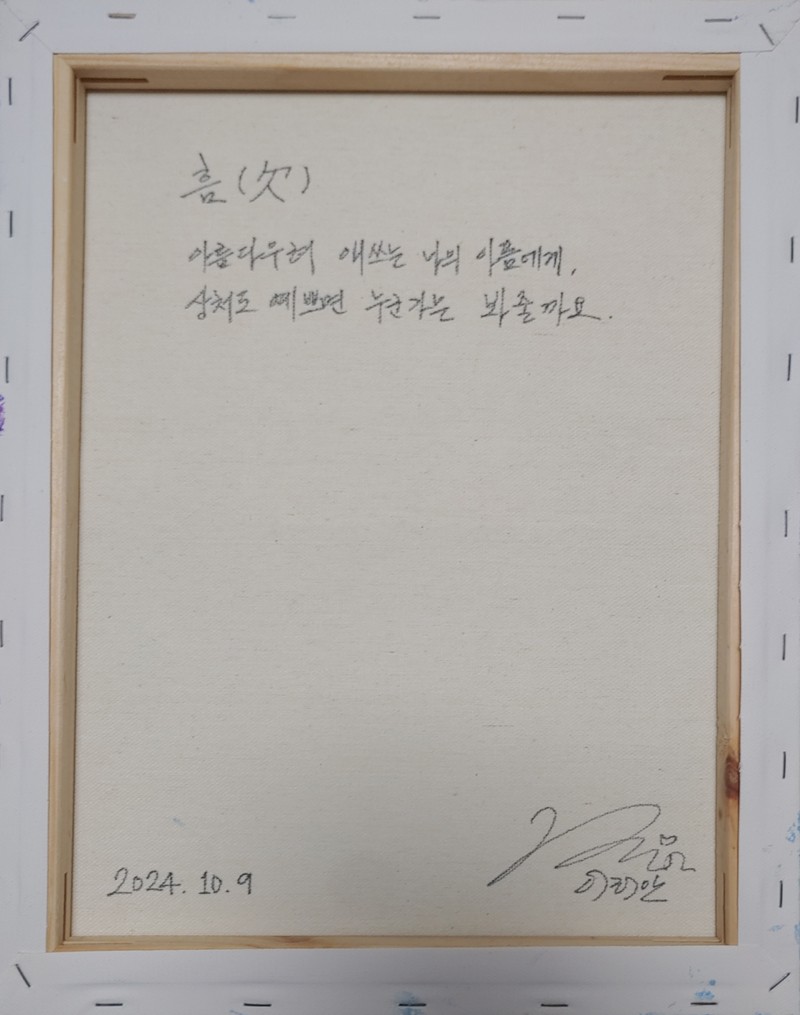 흠(欠)
아름다우려 애쓰는 나의 아픔에게,
상처도 예쁘면 누군가는 봐줄까요.
2024. 10. 9